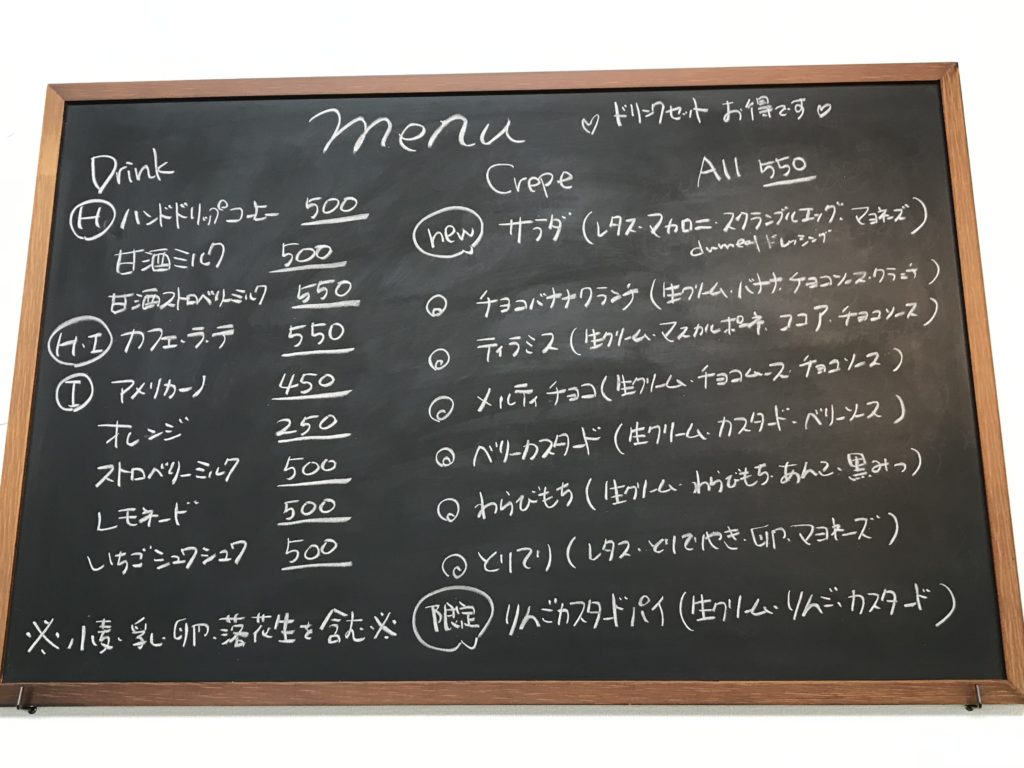 menu
♡ ドリンクセット お得です ♡
Drink
Ⓗ ハンドドリップコーヒー 500
甘酒ミルク 500
甘酒ストロベリーミルク 550
H・I カフェ・ラ・テ 550
Ⓘ アメリカーノ 450
オレンジ 250
ストロベリーミルク 500
レモネード 500
いちごシュワシュワ 500
※小麦・乳・卵・落花生を含む※
Crepe All 550
new サラダ (レタス・マカロニ・スクランブルエッグ・マヨネーズ)
ドレッシング
チョコバナナクランチ (生クリーム・バナナ・チョコソース・クランチ)
ティラミス (生クリーム・マスカルポーネ・ココア・チョコソース)
メルティチョコ (生クリーム・チョコムース・チョコソース)
ベリーカスタード (生クリーム・カスタード・ベリーソース)
わらびもち (生クリーム・わらびもち・あんこ・黒みつ)
とりてり (レタス・とりてりやき・卵・マヨネーズ)
限定 りんごカスタードパイ (生クリーム・りんご・カスタード)